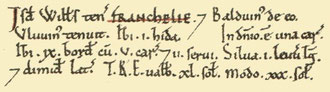 Isđ Witts ten& FRANCHELIE. ⁊ Balduin' de eo.
Vluuin' tenuit. Ibi . i . hida. In dñio . ē una car'.
Ibi . ix . borđ cū . v . car'. ⁊ ii . serui . Silua . i . leuu lḡ.
⁊ dimiđ lat. T.R.E. ualb . xl . sol. Modo . xxx . sol.